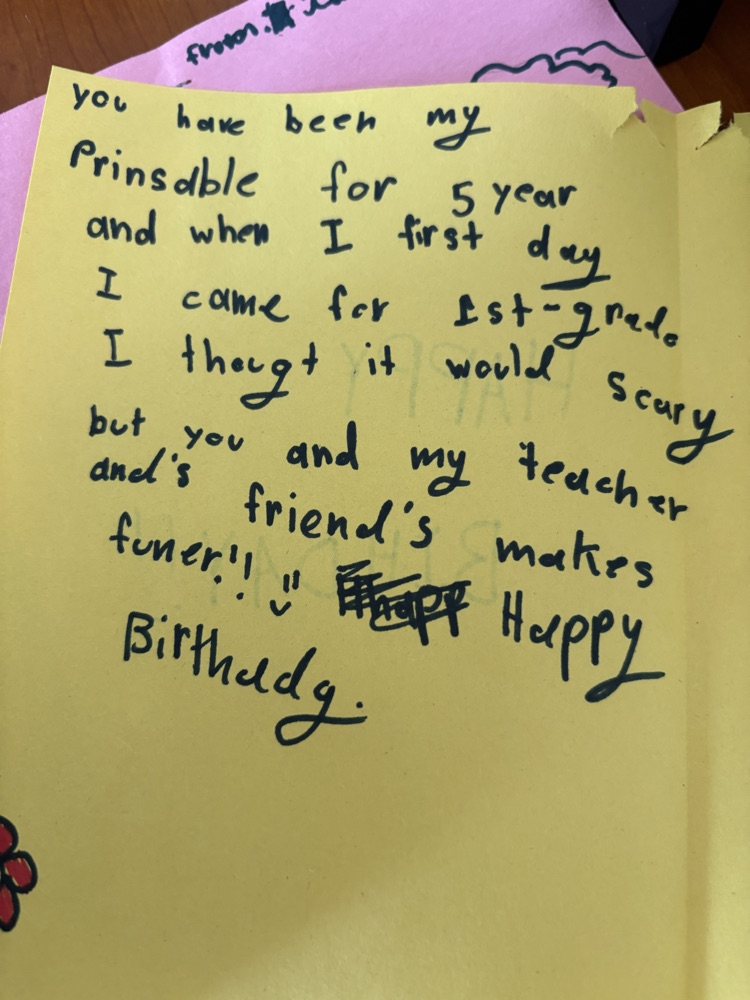 from
you have been my
Prinsable for 5 year
and when I first day
I came for 1st-grade
I thougt it would scary
but you and my teacher
and's friend's makes
funer!! Happy
Birthady.
HAPPY